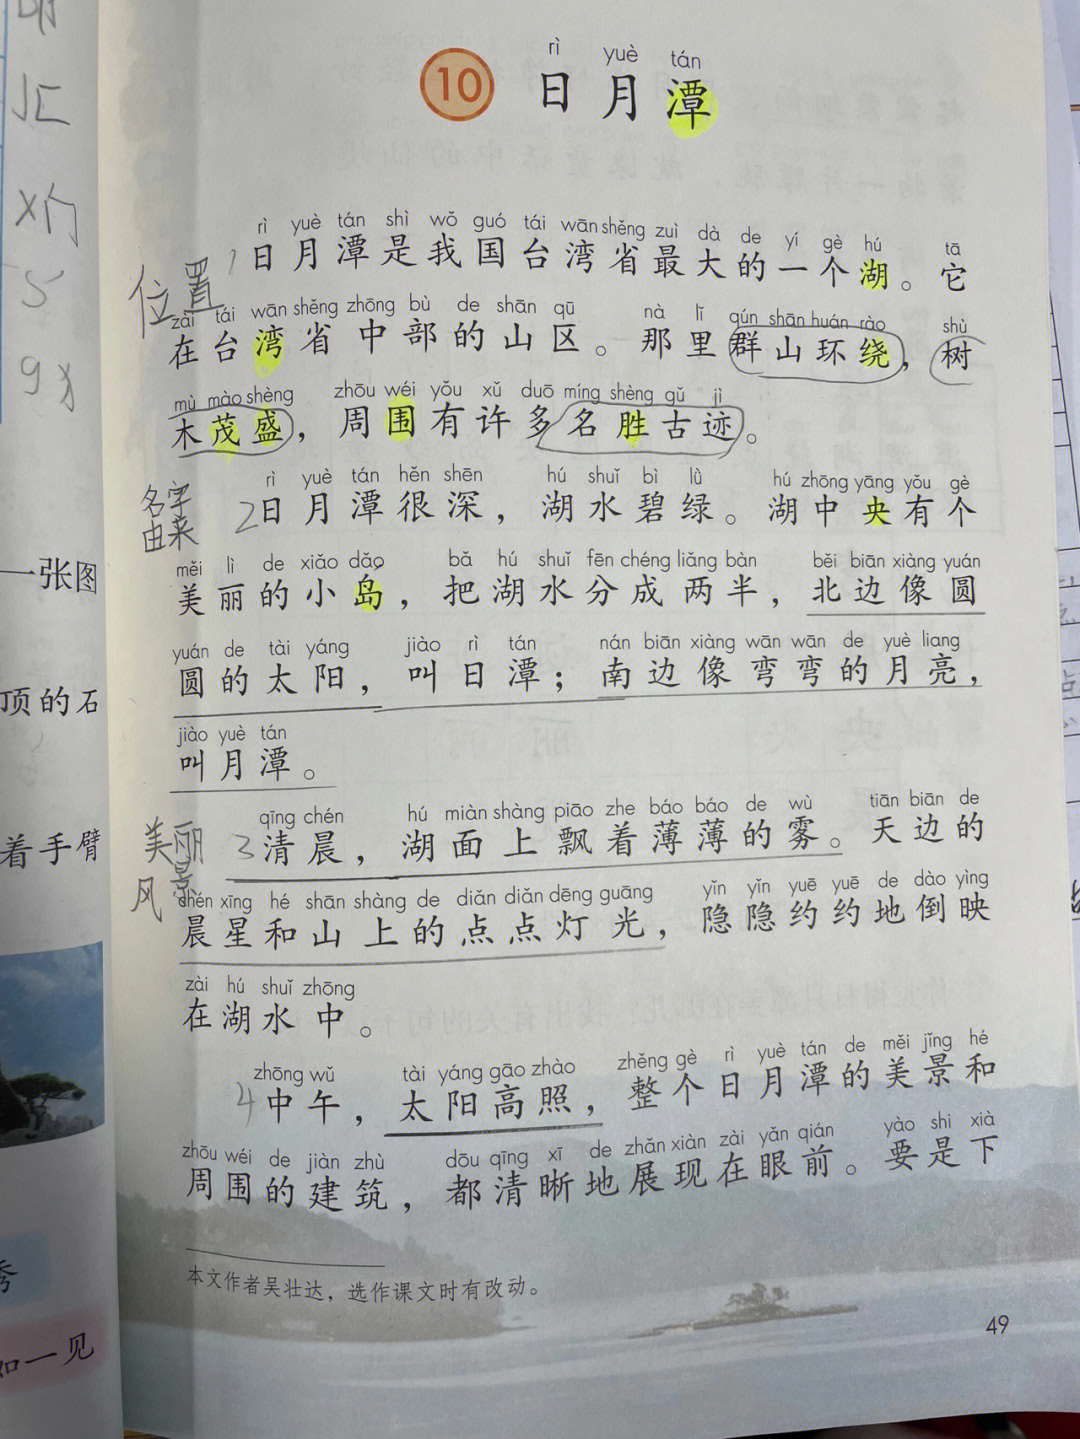 10
rì yuè tán
日月潭
rì yuè tán shì wǒ guó tái wān shěng zuì dà de yí gè hú tā
位置 1 日月潭是我国台湾省最大的一个湖。它
zài tái wān shěng zhōng bù de shān qū nà lǐ qún shān huán rào shù
在台湾省中部的山区。那里群山环绕，树
mù mào shèng zhōu wéi yǒu xǔ duō míng shèng gǔ jì
木茂盛，周围有许多名胜古迹。
rì yuè tán hěn shēn hú shuǐ bì lǜ hú zhōng yāng yǒu gè
名字
由来
2 日月潭很深，湖水碧绿。湖中央有个
měi lì de xiǎo dǎo bǎ hú shuǐ fēn chéng liǎng bàn běi biān xiàng yuán
美丽的小岛，把湖水分成两半，北边像圆
yuán de tài yáng jiào rì tán nán biān xiàng wān wān de yuè liang
圆的太阳，叫日潭；南边像弯弯的月亮，
jiào yuè tán
叫月潭。
qīng chén hú miàn shàng piāo zhe báo báo de wù tiān biān de
美丽
风景
3 清晨，湖面上飘着薄薄的雾。天边的
chén xīng hé shān shàng de diǎn diǎn dēng guāng yǐn yǐn yuē yuē de dào yìng
晨星和山上的点点灯光，隐隐约约地倒映
zài hú shuǐ zhōng
在湖水中。
zhōng wǔ tài yáng gāo zhào zhěng gè rì yuè tán de měi jǐng hé
4 中午，太阳高照，整个日月潭的美景和
zhōu wéi de jiàn zhù dōu qīng xī de zhǎn xiàn zài yǎn qián yào shi xià
周围的建筑，都清晰地展现在眼前。要是下
本文作者吴壮达，选作课文时有改动。
49
一张图
顶的石
着手臂
秀
如一见